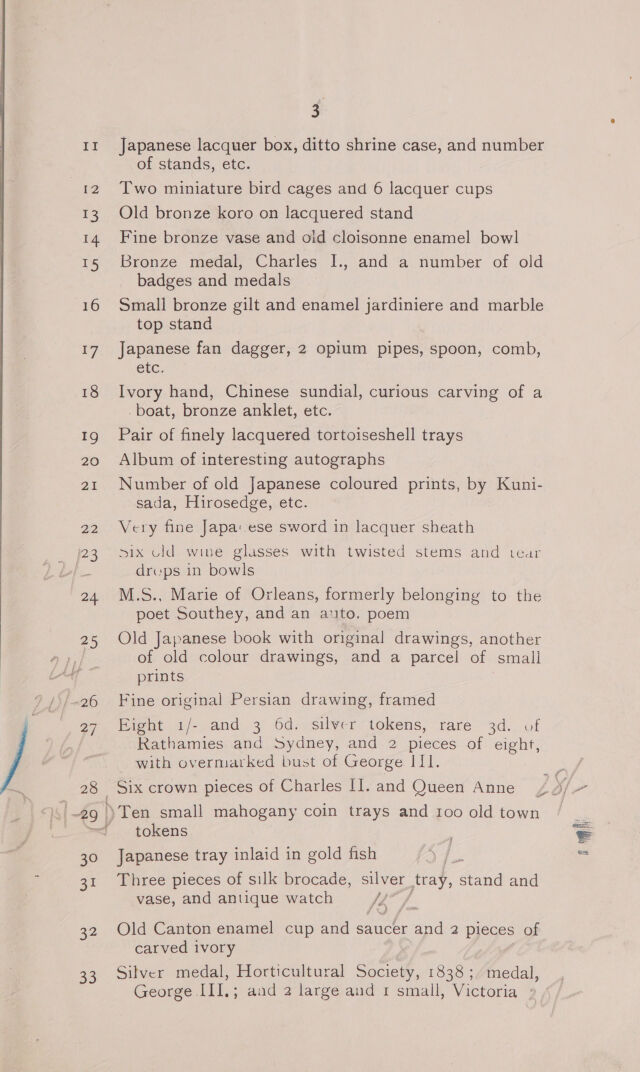 3
11 Japanese lacquer box, ditto shrine case, and number
of stands, etc.
12 Two miniature bird cages and 6 lacquer cups
13 Old bronze koro on lacquered stand
14 Fine bronze vase and old cloisonne enamel bowl
15 Bronze medal, Charles I., and a number of old
badges and medals
16 Small bronze gilt and enamel jardiniere and marble
top stand
17 Japanese fan dagger, 2 opium pipes, spoon, comb,
etc.
18 Ivory hand, Chinese sundial, curious carving of a
boat, bronze anklet, etc.
19 Pair of finely lacquered tortoiseshell trays
20 Album of interesting autographs
21 Number of old Japanese coloured prints, by Kuni-
sada, Hirosedge, etc.
22 Very fine Japanese sword in lacquer sheath
23 Six old wine glasses with twisted stems and tear
22/- drops in bowls
24 M.S., Marie of Orleans, formerly belonging to the
poet Southey, and an auto. poem
25 Old Japanese book with original drawings, another
of old colour drawings, and a parcel of small
prints
26 Fine original Persian drawing, framed
27 Eight 1/- and 3 6d. silver tokens, rare 3d. of
Rathamies and Sydney, and 2 pieces of eight,
with overmarked bust of George III.
28 Six crown pieces of Charles II. and Queen Anne
29 Ten small mahogany coin trays and 100 old town
tokens
30 Japanese tray inlaid in gold fish
31 Three pieces of silk brocade, silver tray, stand and
vase, and antique watch
32 Old Canton enamel cup and saucer and 2 pieces of
carved ivory
33 Silver medal, Horticultural Society, 1838; medal,
George III.; and 2 large and 1 small, Victoria